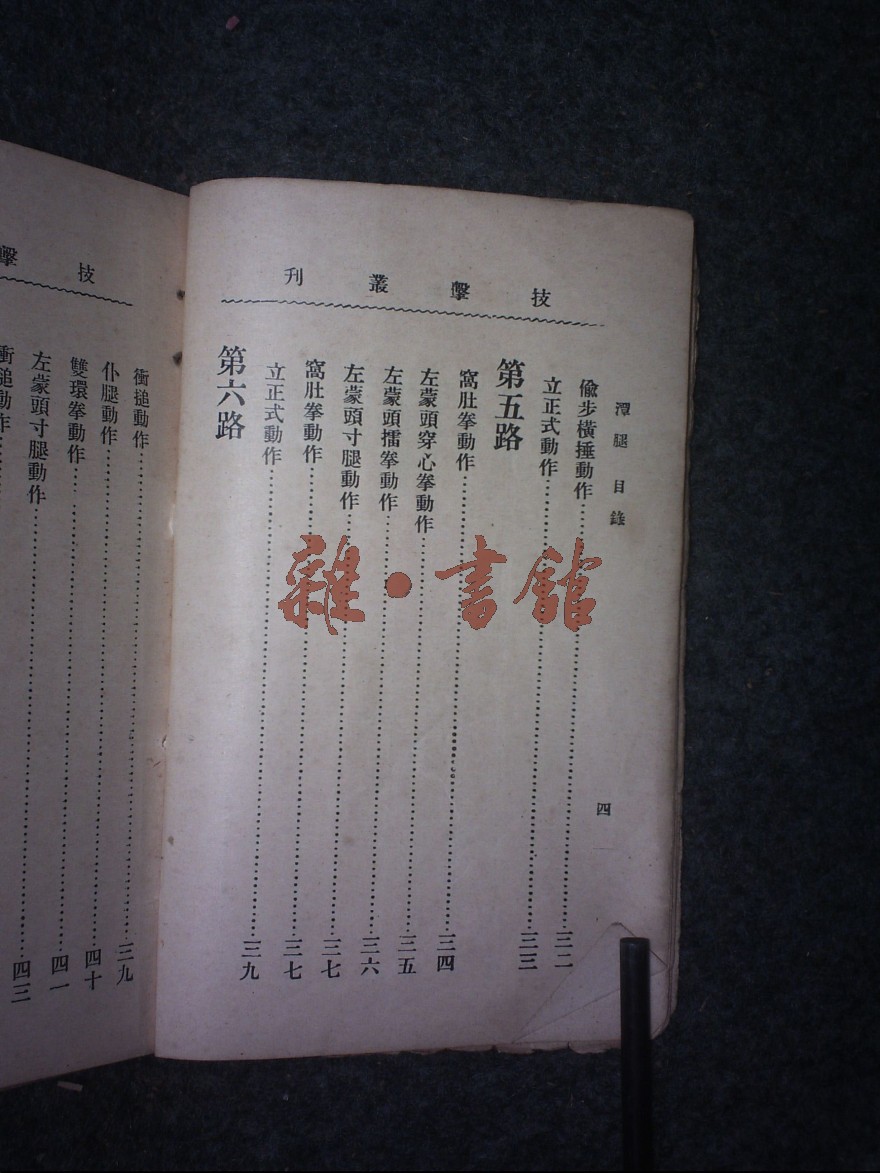 技擊叢刊
潭腿目錄 四
偸步橫捶動作……三二
立正式動作……三三
第五路
窩肚拳動作……三四
左蒙頭穿心拳動作……三五
左蒙頭擂拳動作……三六
左蒙頭寸腿動作……三七
窩肚拳動作……三七
立正式動作……三九
第六路
技擊
衝搥動作……三九
仆腿動作……四十
雙環拳動作……四一
左蒙頭寸腿動作……四三
雜·書館